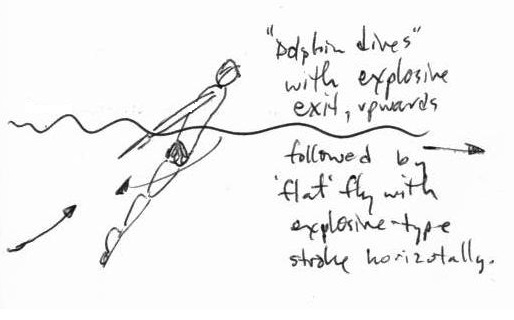 "Dolphin dives"
with explosive
exit, upwards
followed by
'flat' fly with
explosive-type
stroke horizotally.